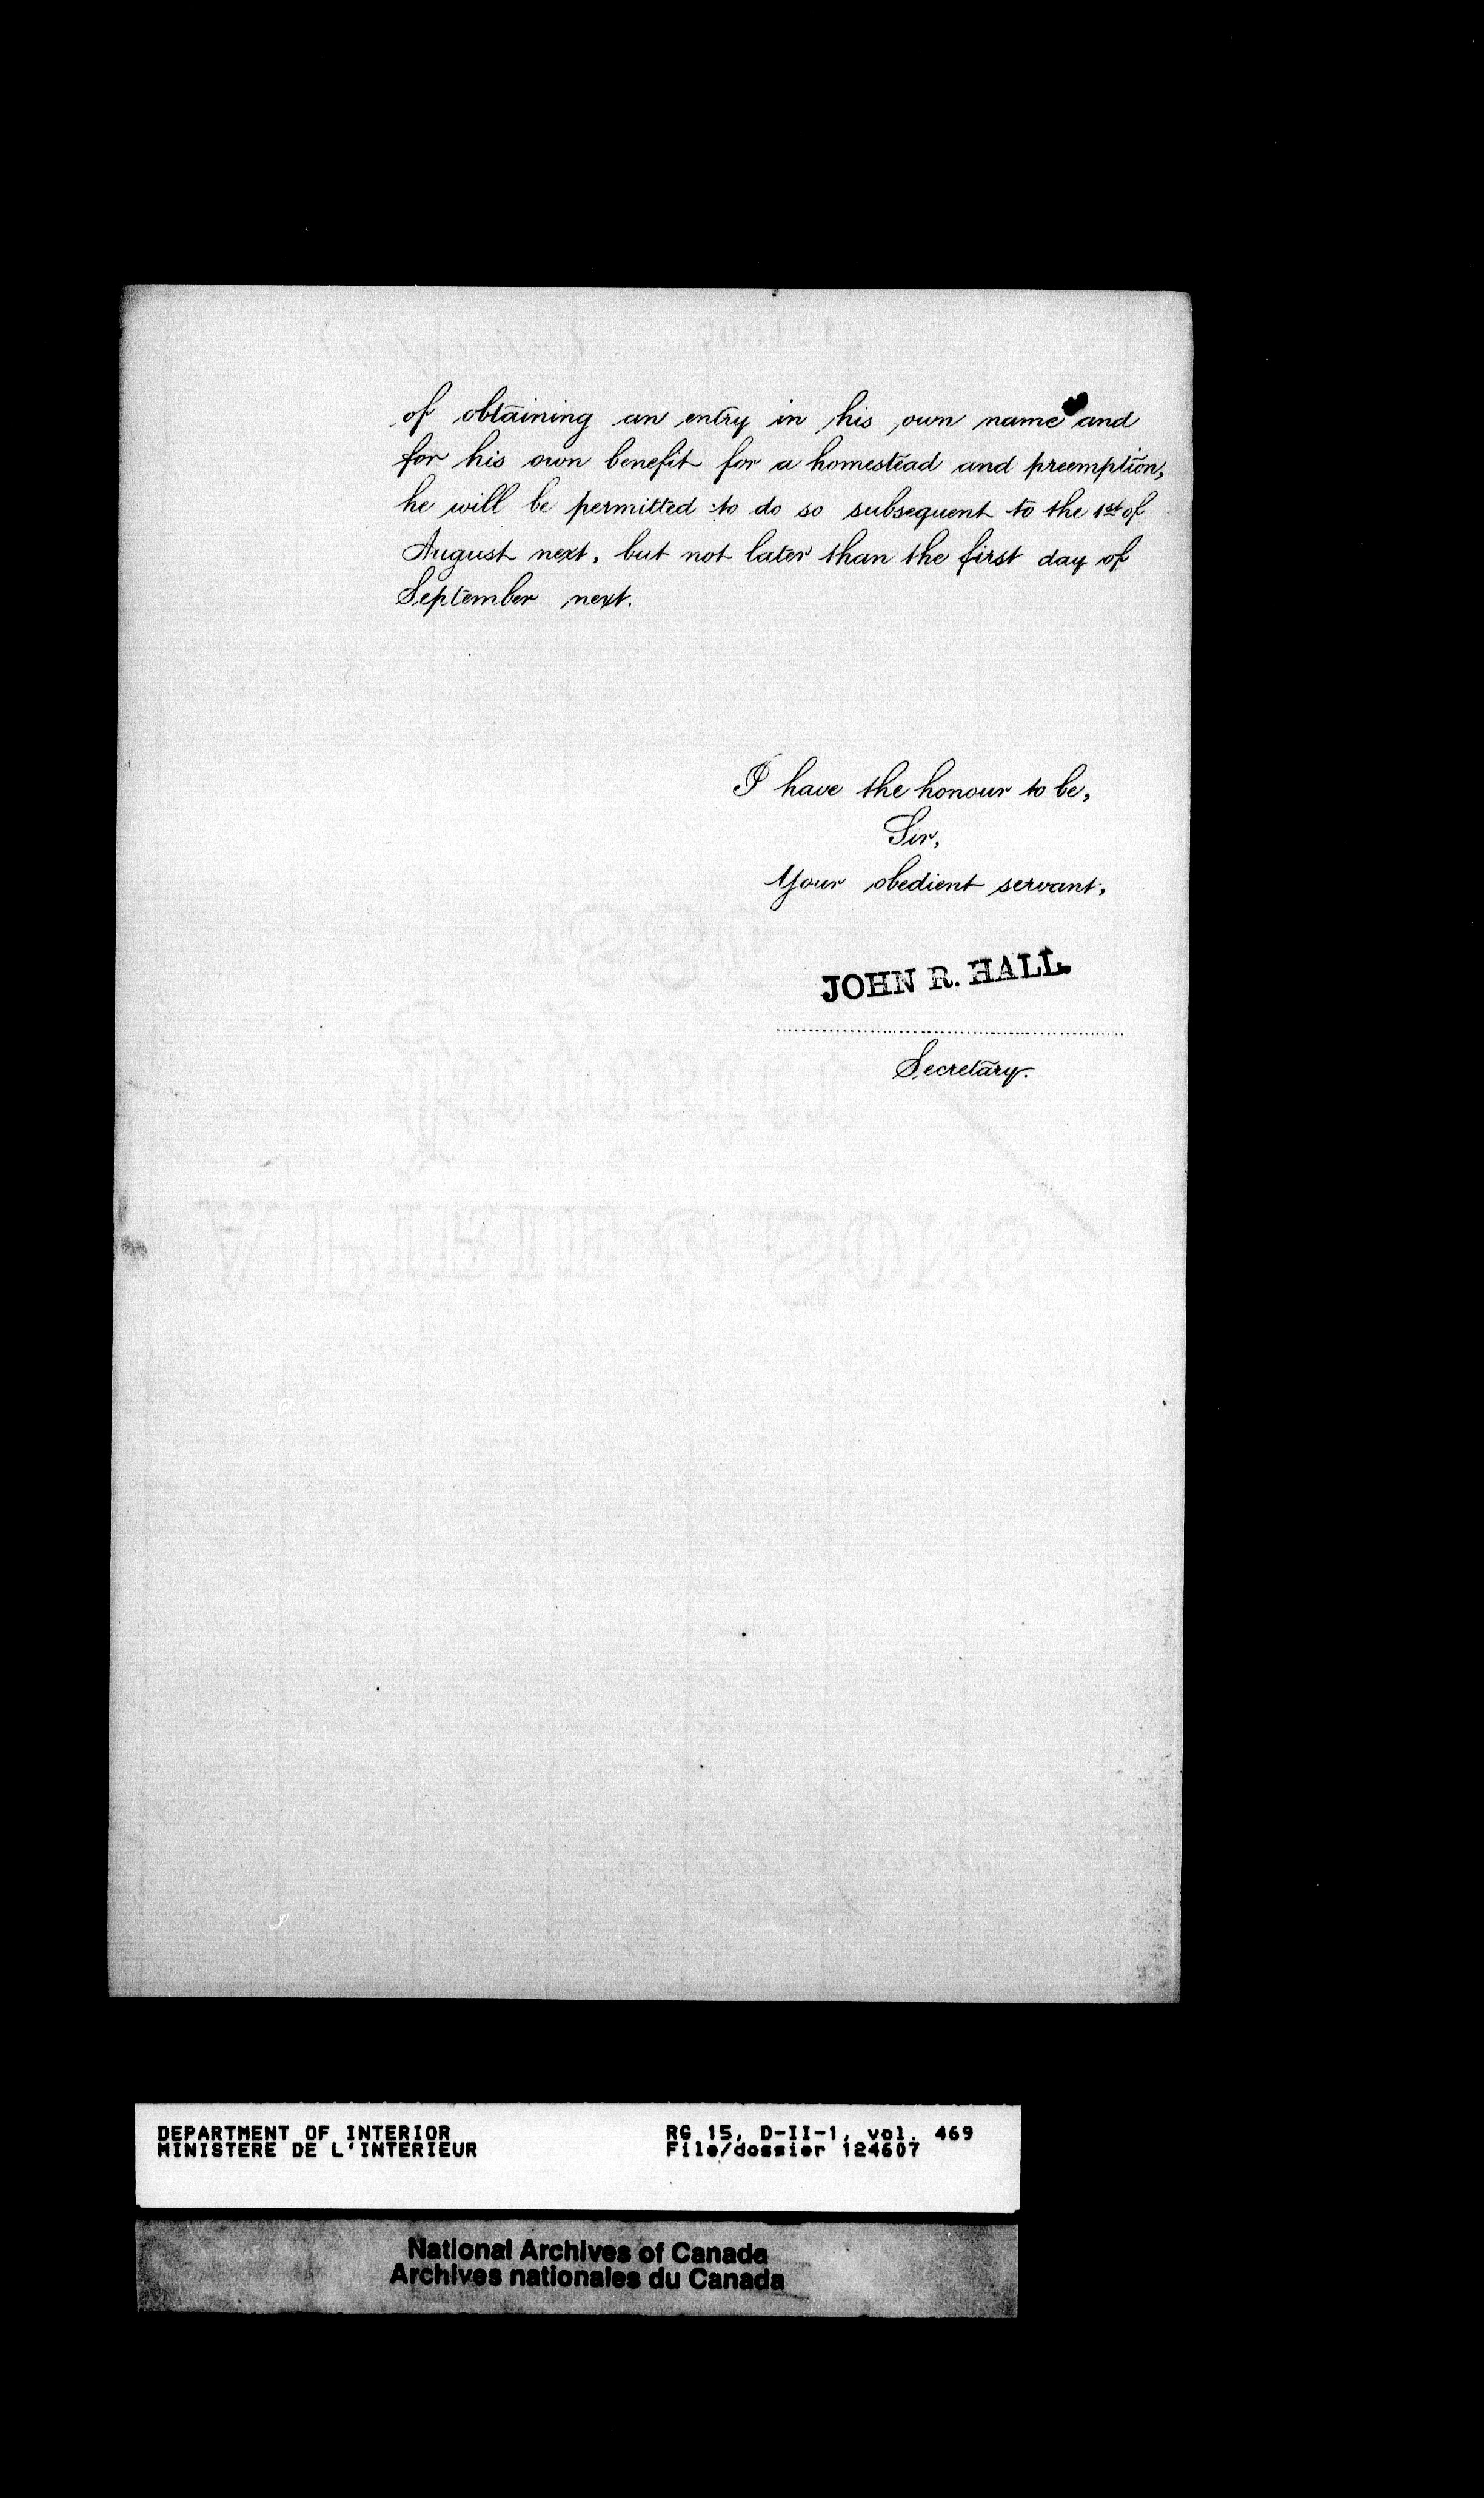 of obtaining an entry in his own name and
for his own benefit for a homestead and preemption,
he will be permitted to do so subsequent to the 1st of
August next, but not later than the first day of
September next.
I have the honour to be,
Sir,
Your obedient servant,
JOHN R. HALL
Secretary.
DEPARTMENT OF INTERIOR
MINISTERE DE L'INTERIEUR
RG 15, D-II-1, vol. 469
File/dossier 124607
National Archives of Canada
Archives nationales du Canada